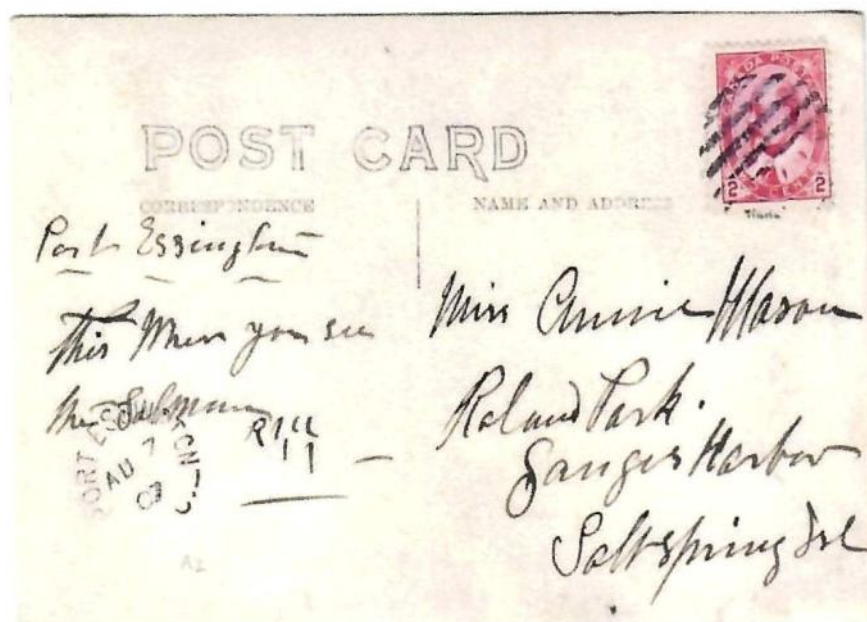 POST CARD
CORRESPONDENCE
NAME AND ADDRESS
CANADA POST
2 CENTS 2
Port Essington
this when you see
the Salmon
PORT ESSINGTON
AU 7
09
Miss Annie Mason
Roland Park.
Ganges Harbor
Saltspring Isl
A2